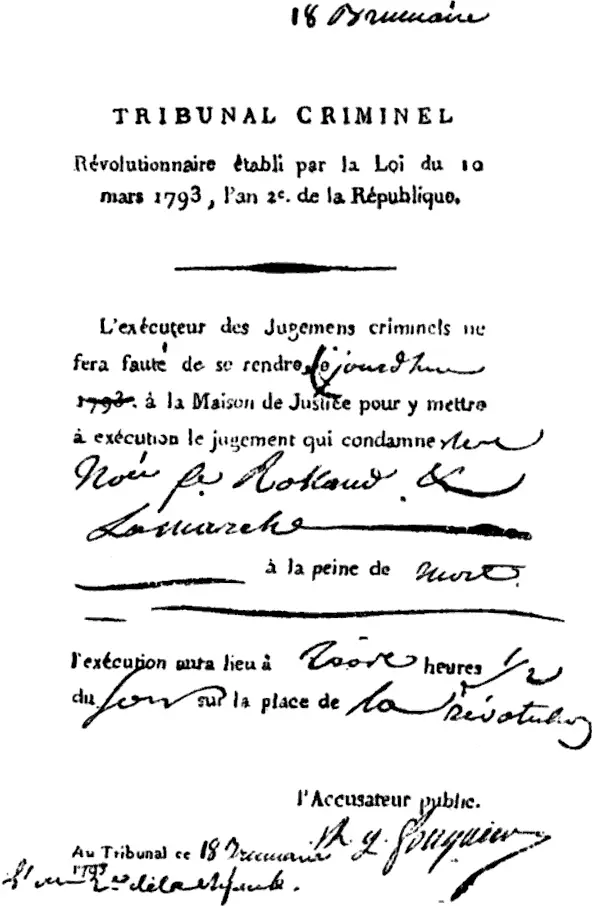 18 Brumaire
TRIBUNAL CRIMINEL
Révolutionnaire établi par la Loi du 10
mars 1793, l'an 2ᵉ. de la République.
L'exécuteur des Jugemens criminels ne
fera faute de se rendre aujourd'hui
1793. à la Maison de Justice pour y mettre
à exécution le jugement qui condamne
fe Rolland &
Lamarche
à la peine de mort.
l'exécution aura lieu à trois heures 1/2
du soir sur la place de la révolution
l'Accusateur public.
Au Tribunal ce 18 Brumaire
1793
A. Q. Fouquier
L'an 2ᵉ de la République.